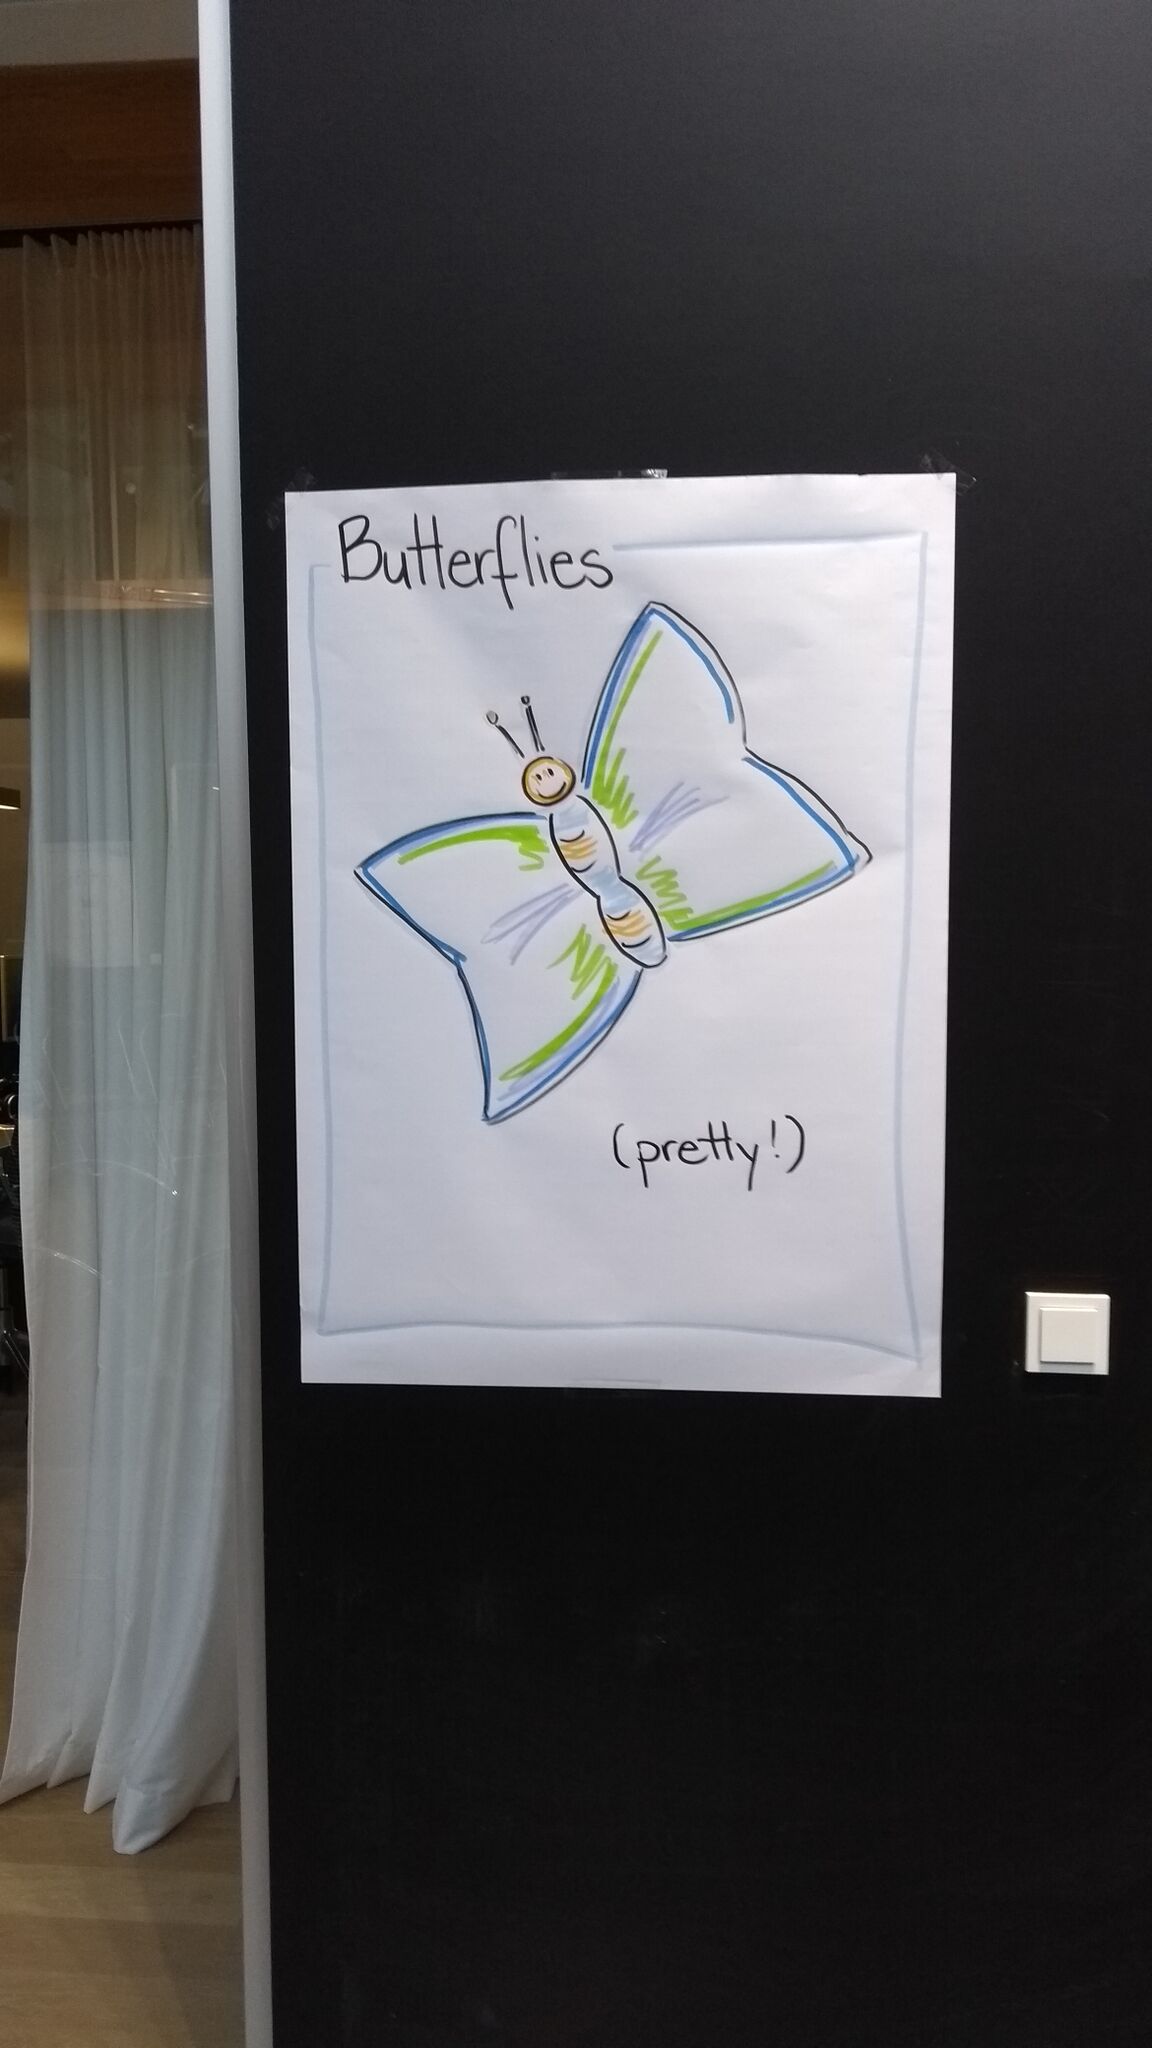 Butterflies
(pretty!)